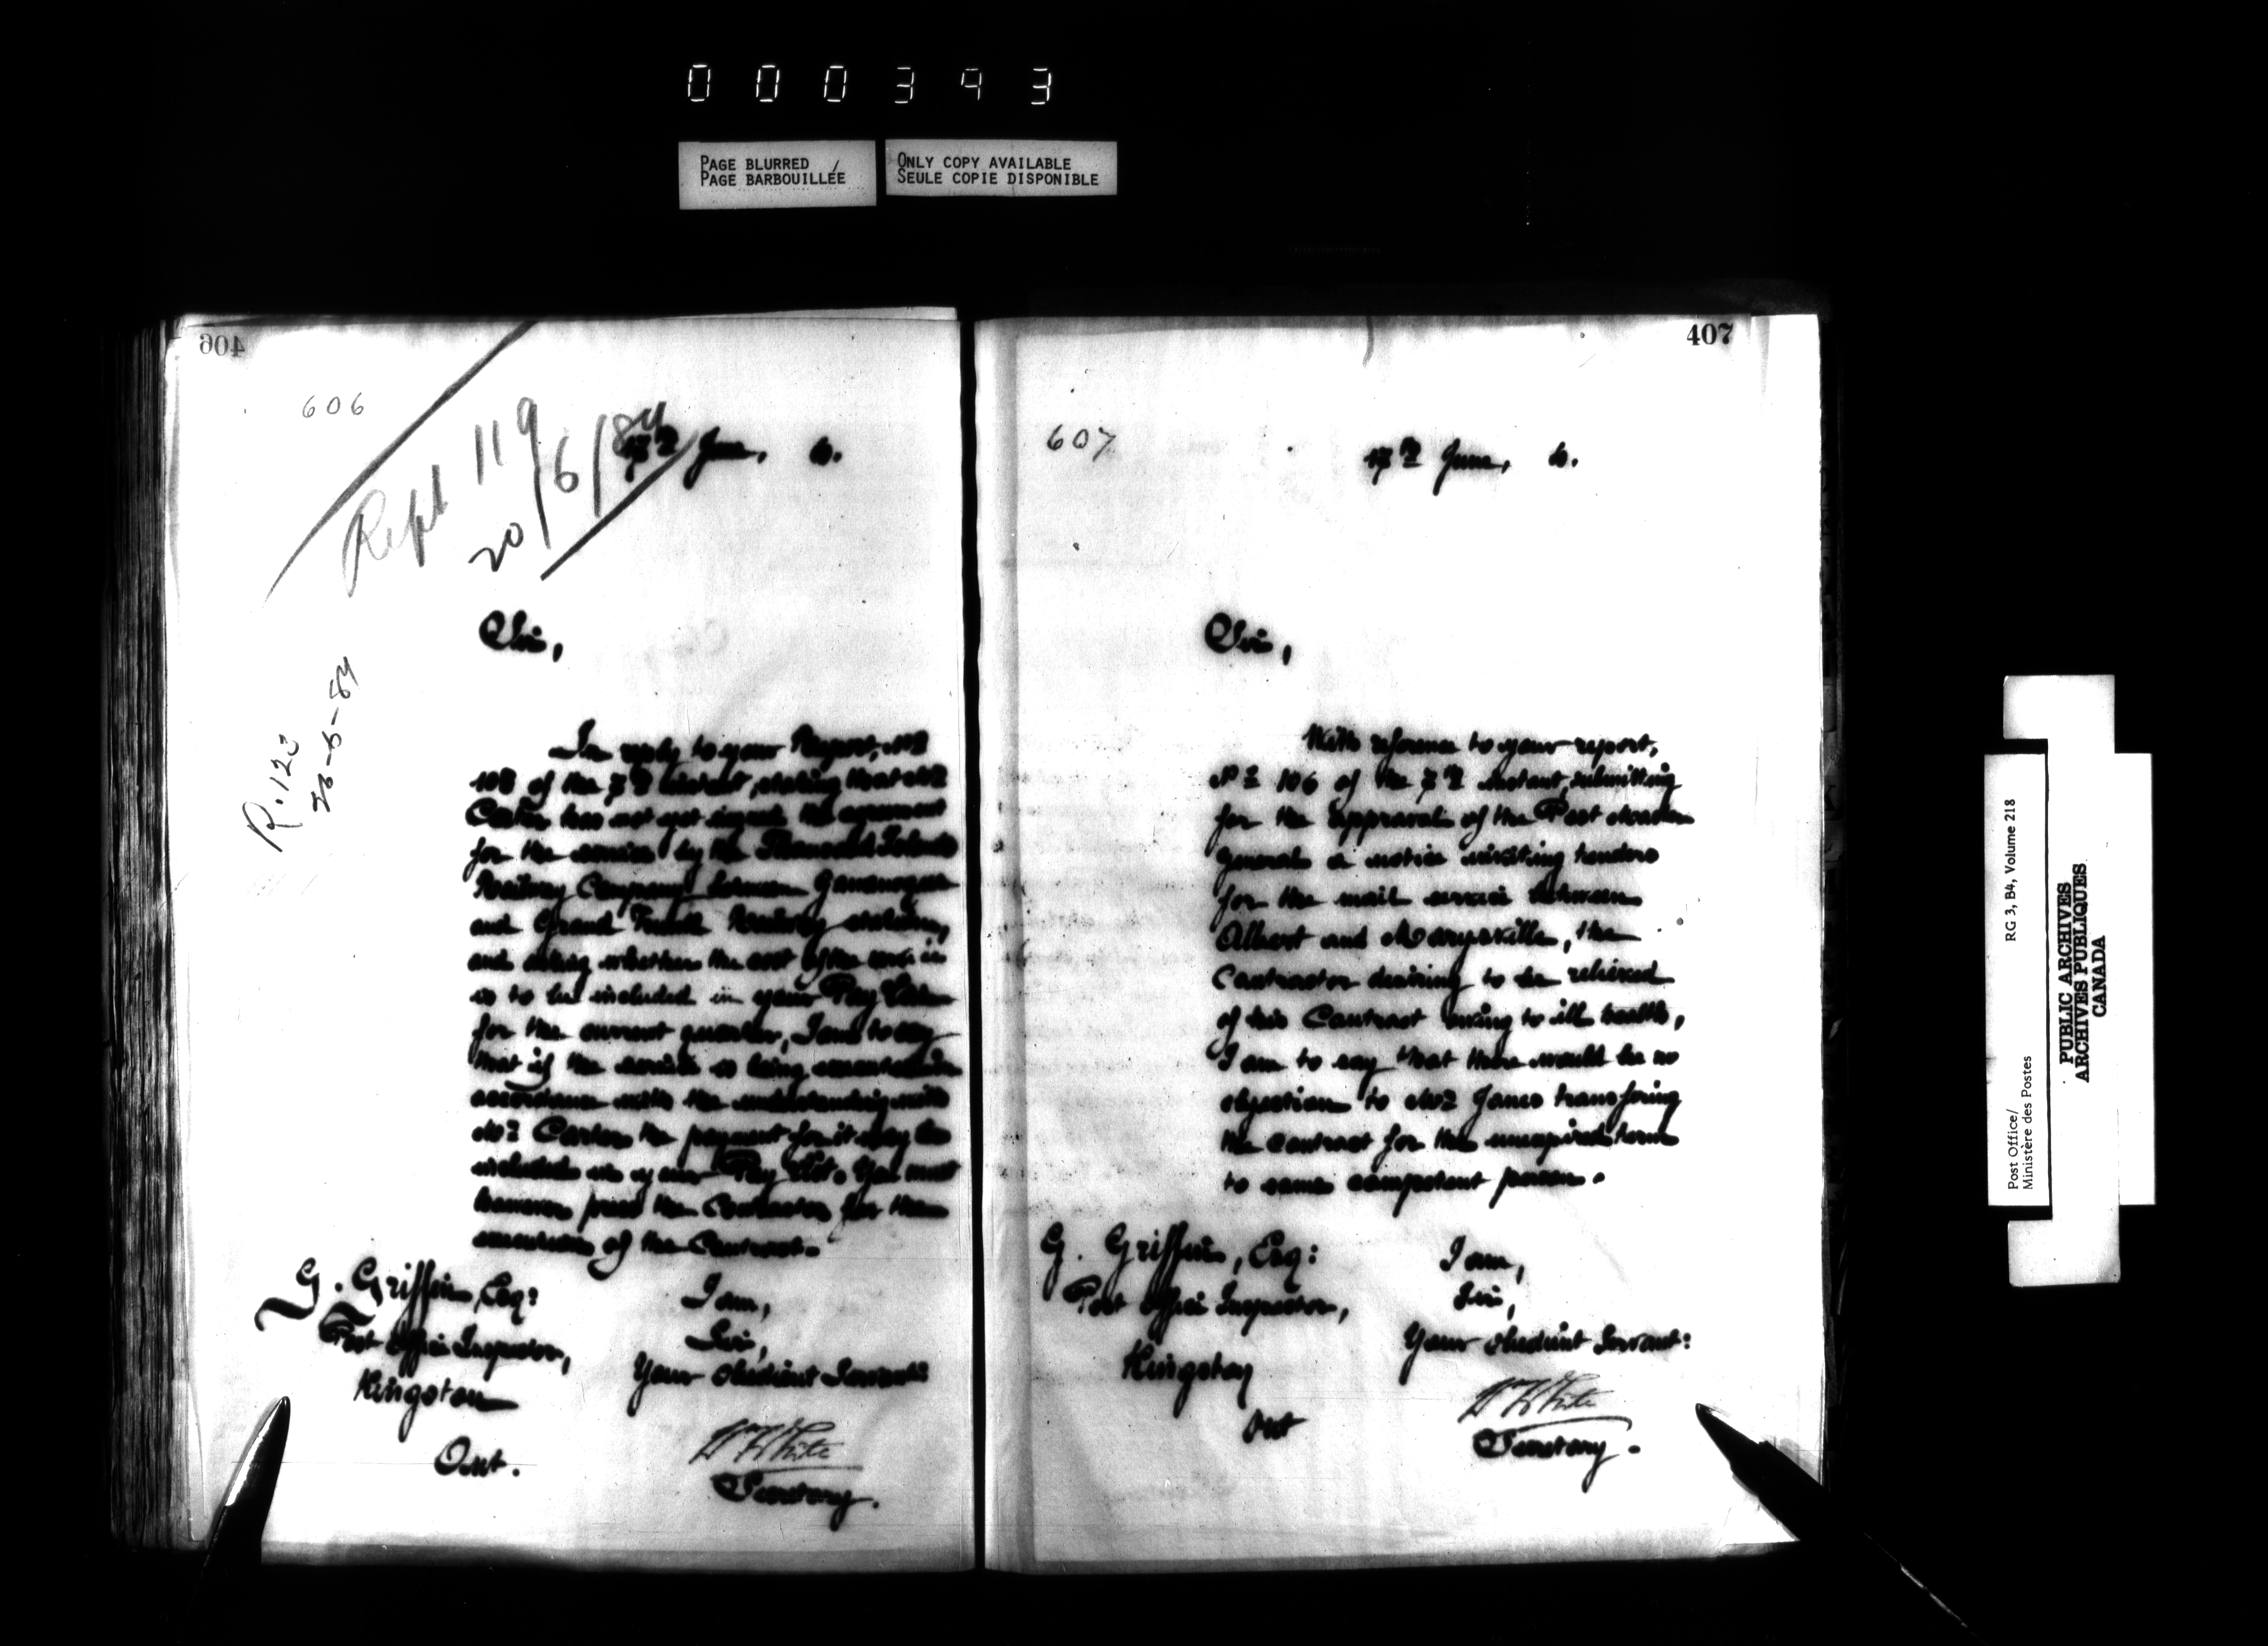 000393
PAGE BLURRED
PAGE BARBOUILLÉE
ONLY COPY AVAILABLE
SEULE COPIE DISPONIBLE
406
606
Rept 119
20/6/84
17th June, 6.
R. 123
23-6-84
Sir,
In reply to your Report, No
108 of the 7th instant, stating that Mr
Carter has not yet signed the agreement
for the service by the Thousand Islands
Railway Company between Gananoque
and Grand Trunk Railway station,
and asking whether the cost of the service
is to be included in your Pay List
for the current quarter, I am to say
that if the service is being executed in
accordance with the understanding with
Mr Carter the payment for it may be
included in your Pay List. You must
however press the Contractor for the
execution of the Contract.
G. Griffin, Esq:
Post Office Inspector,
Kingston
Ont.
I am,
Sir,
Your obedient Servant:
Wm White
Secretary.
407
607
17th June, 6.
Sir,
With reference to your report,
No 106 of the 7th instant, submitting
for the approval of the Post Master
General a notice inviting tenders
for the mail service between
Albert and Marysville, the
Contractor desiring to be relieved
of his Contract owing to ill health,
I am to say that there would be no
objection to Mr Jones transfering
the contract for the unexpired term
to some competent person.
G. Griffin, Esq:
Post Office Inspector,
Kingston
Ont
I am,
Sir,
Your obedient Servant:
Wm White
Secretary.
Post Office/
Ministère des Postes
RG 3, B4, Volume 218
PUBLIC ARCHIVES
ARCHIVES PUBLIQUES
CANADA